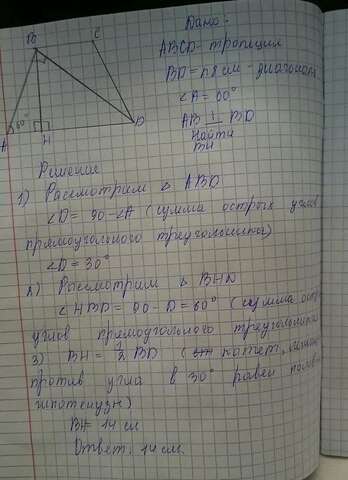 Дано:
ABCD - трапеция
BD = 28 см - диагональ
∠A = 60°
AB ⊥ BD
Найти
BH
B
C
60°
A
H
D
Решение
1) Рассмотрим △ ABD
∠D = 90 - ∠A (сумма острых углов
прямоугольного треугольника)
∠D = 30°
2) Рассмотрим △ BHD
∠HBD = 90 - D = 60° (сумма
углов прямоугольного треугольника
3) BH = ½ BD ( катет,
против угла в 30° равен
гипотенузы)
BH = 14 см
Ответ: 14 см.